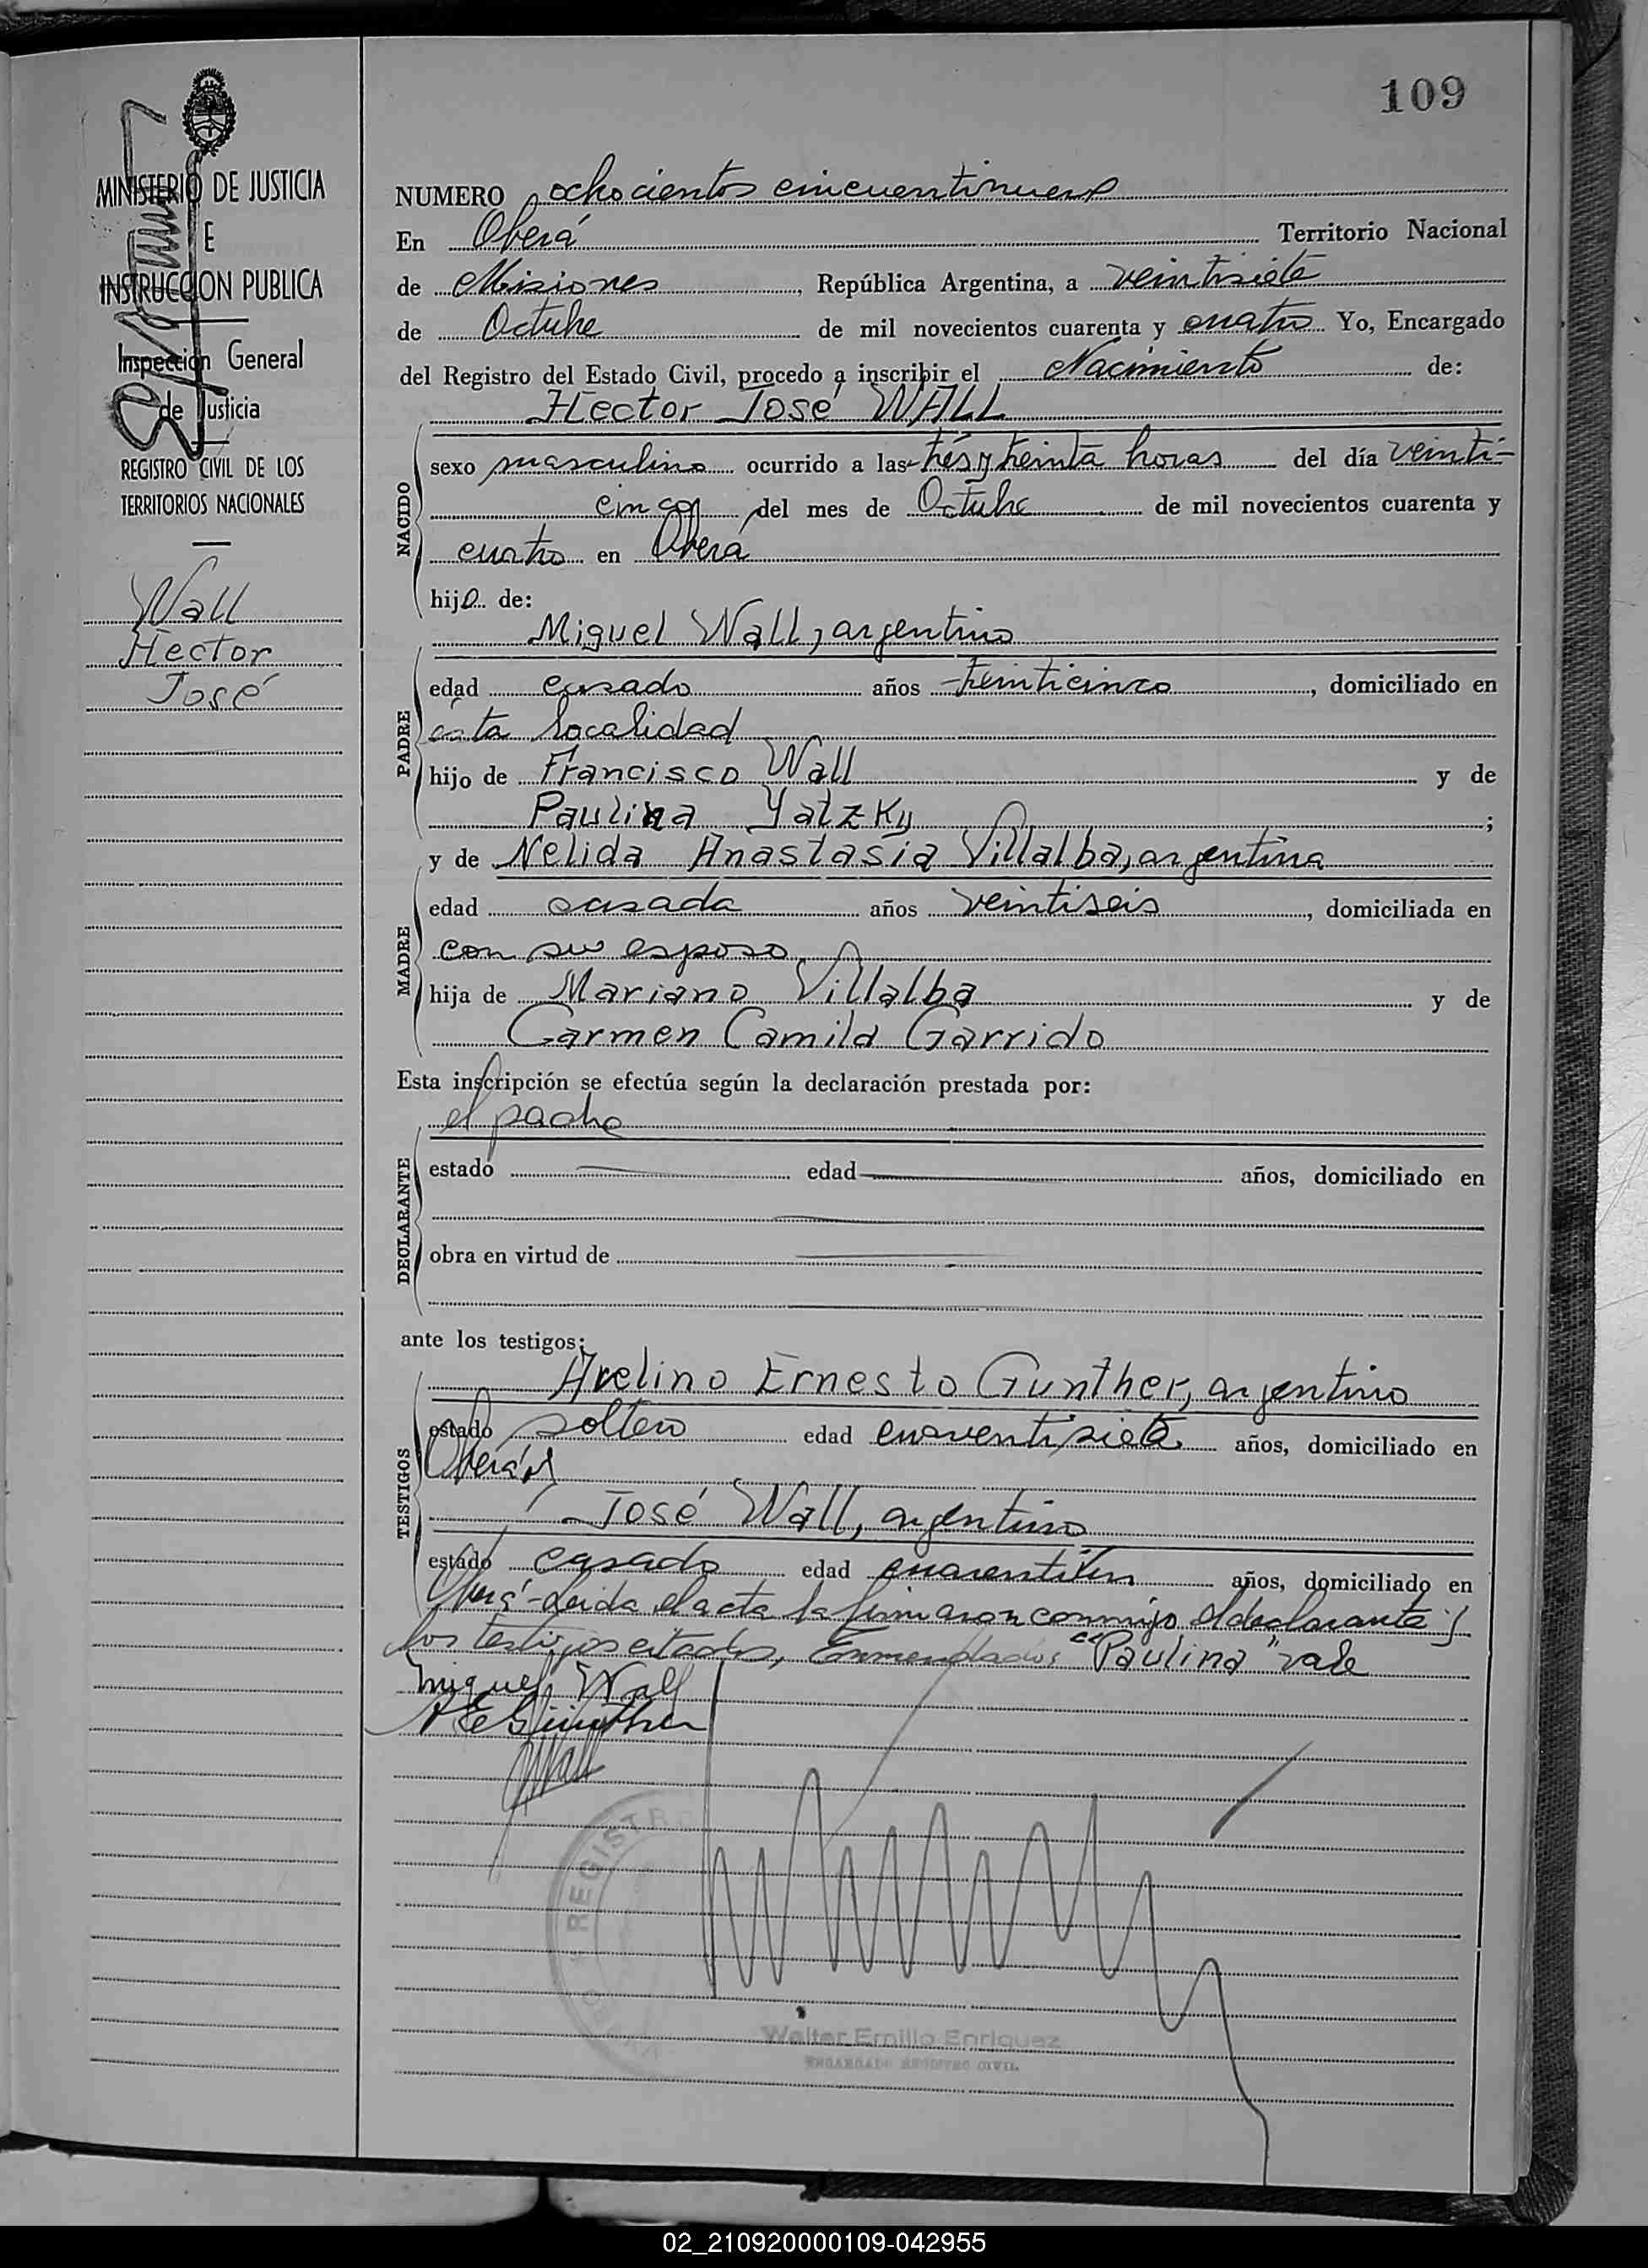 109
MINISTERIO DE JUSTICIA
E
INSTRUCCION PUBLICA
Inspección General
de Justicia
REGISTRO CIVIL DE LOS
TERRITORIOS NACIONALES
Wall
Hector
José
NUMERO ochocientos cincuentinueve
En Oberá Territorio Nacional
de Misiones, República Argentina, a veintisiete
de Octubre de mil novecientos cuarenta y cuatro Yo, Encargado
del Registro del Estado Civil, procedo a inscribir el Nacimiento de:
Hector José WALL
NACIDO
sexo masculino ocurrido a las tres y treinta horas del día veinti-
cinco del mes de Octubre de mil novecientos cuarenta y
cuatro en Oberá
hijo de:
Miguel Wall, argentino
PADRE
edad casado años treinticinco, domiciliado en
ésta localidad
hijo de Francisco Wall y de
Paulina Yatzky;
y de Nelida Anastasia Villalba, argentina
MADRE
edad casada años veintiseis, domiciliada en
con su esposo
hija de Mariano Villalba y de
Carmen Camila Garrido
Esta inscripción se efectúa según la declaración prestada por:
el padre
DECLARANTE
estado edad años, domiciliado en
obra en virtud de
ante los testigos:
TESTIGOS
Avelino Ernesto Gunther, argentino
estado soltero edad cuarentisiete años, domiciliado en
Oberá y
José Wall, argentino
estado casado edad cuarentiún años, domiciliado en
Oberá - Leida el acta la firmaron conmigo el declarante y
los testigos citados, Enmendados "Paulina" vale
Miguel Wall
A E Günther
JWall
REGISTRO
Walter Emilio Enriquez
ENCARGADO REGISTRO CIVIL
02_210920000109-042955